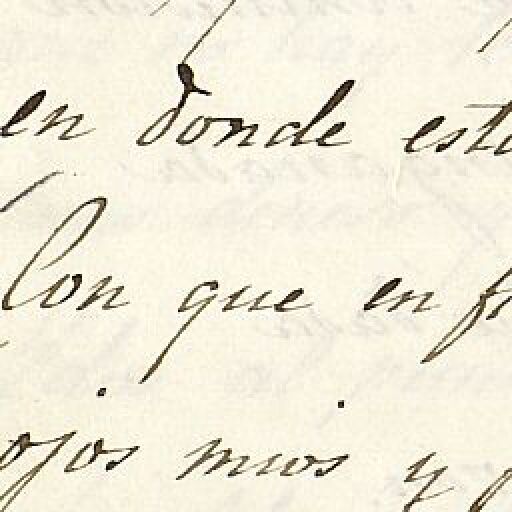 en donde esta
Con que en
ojos mios y